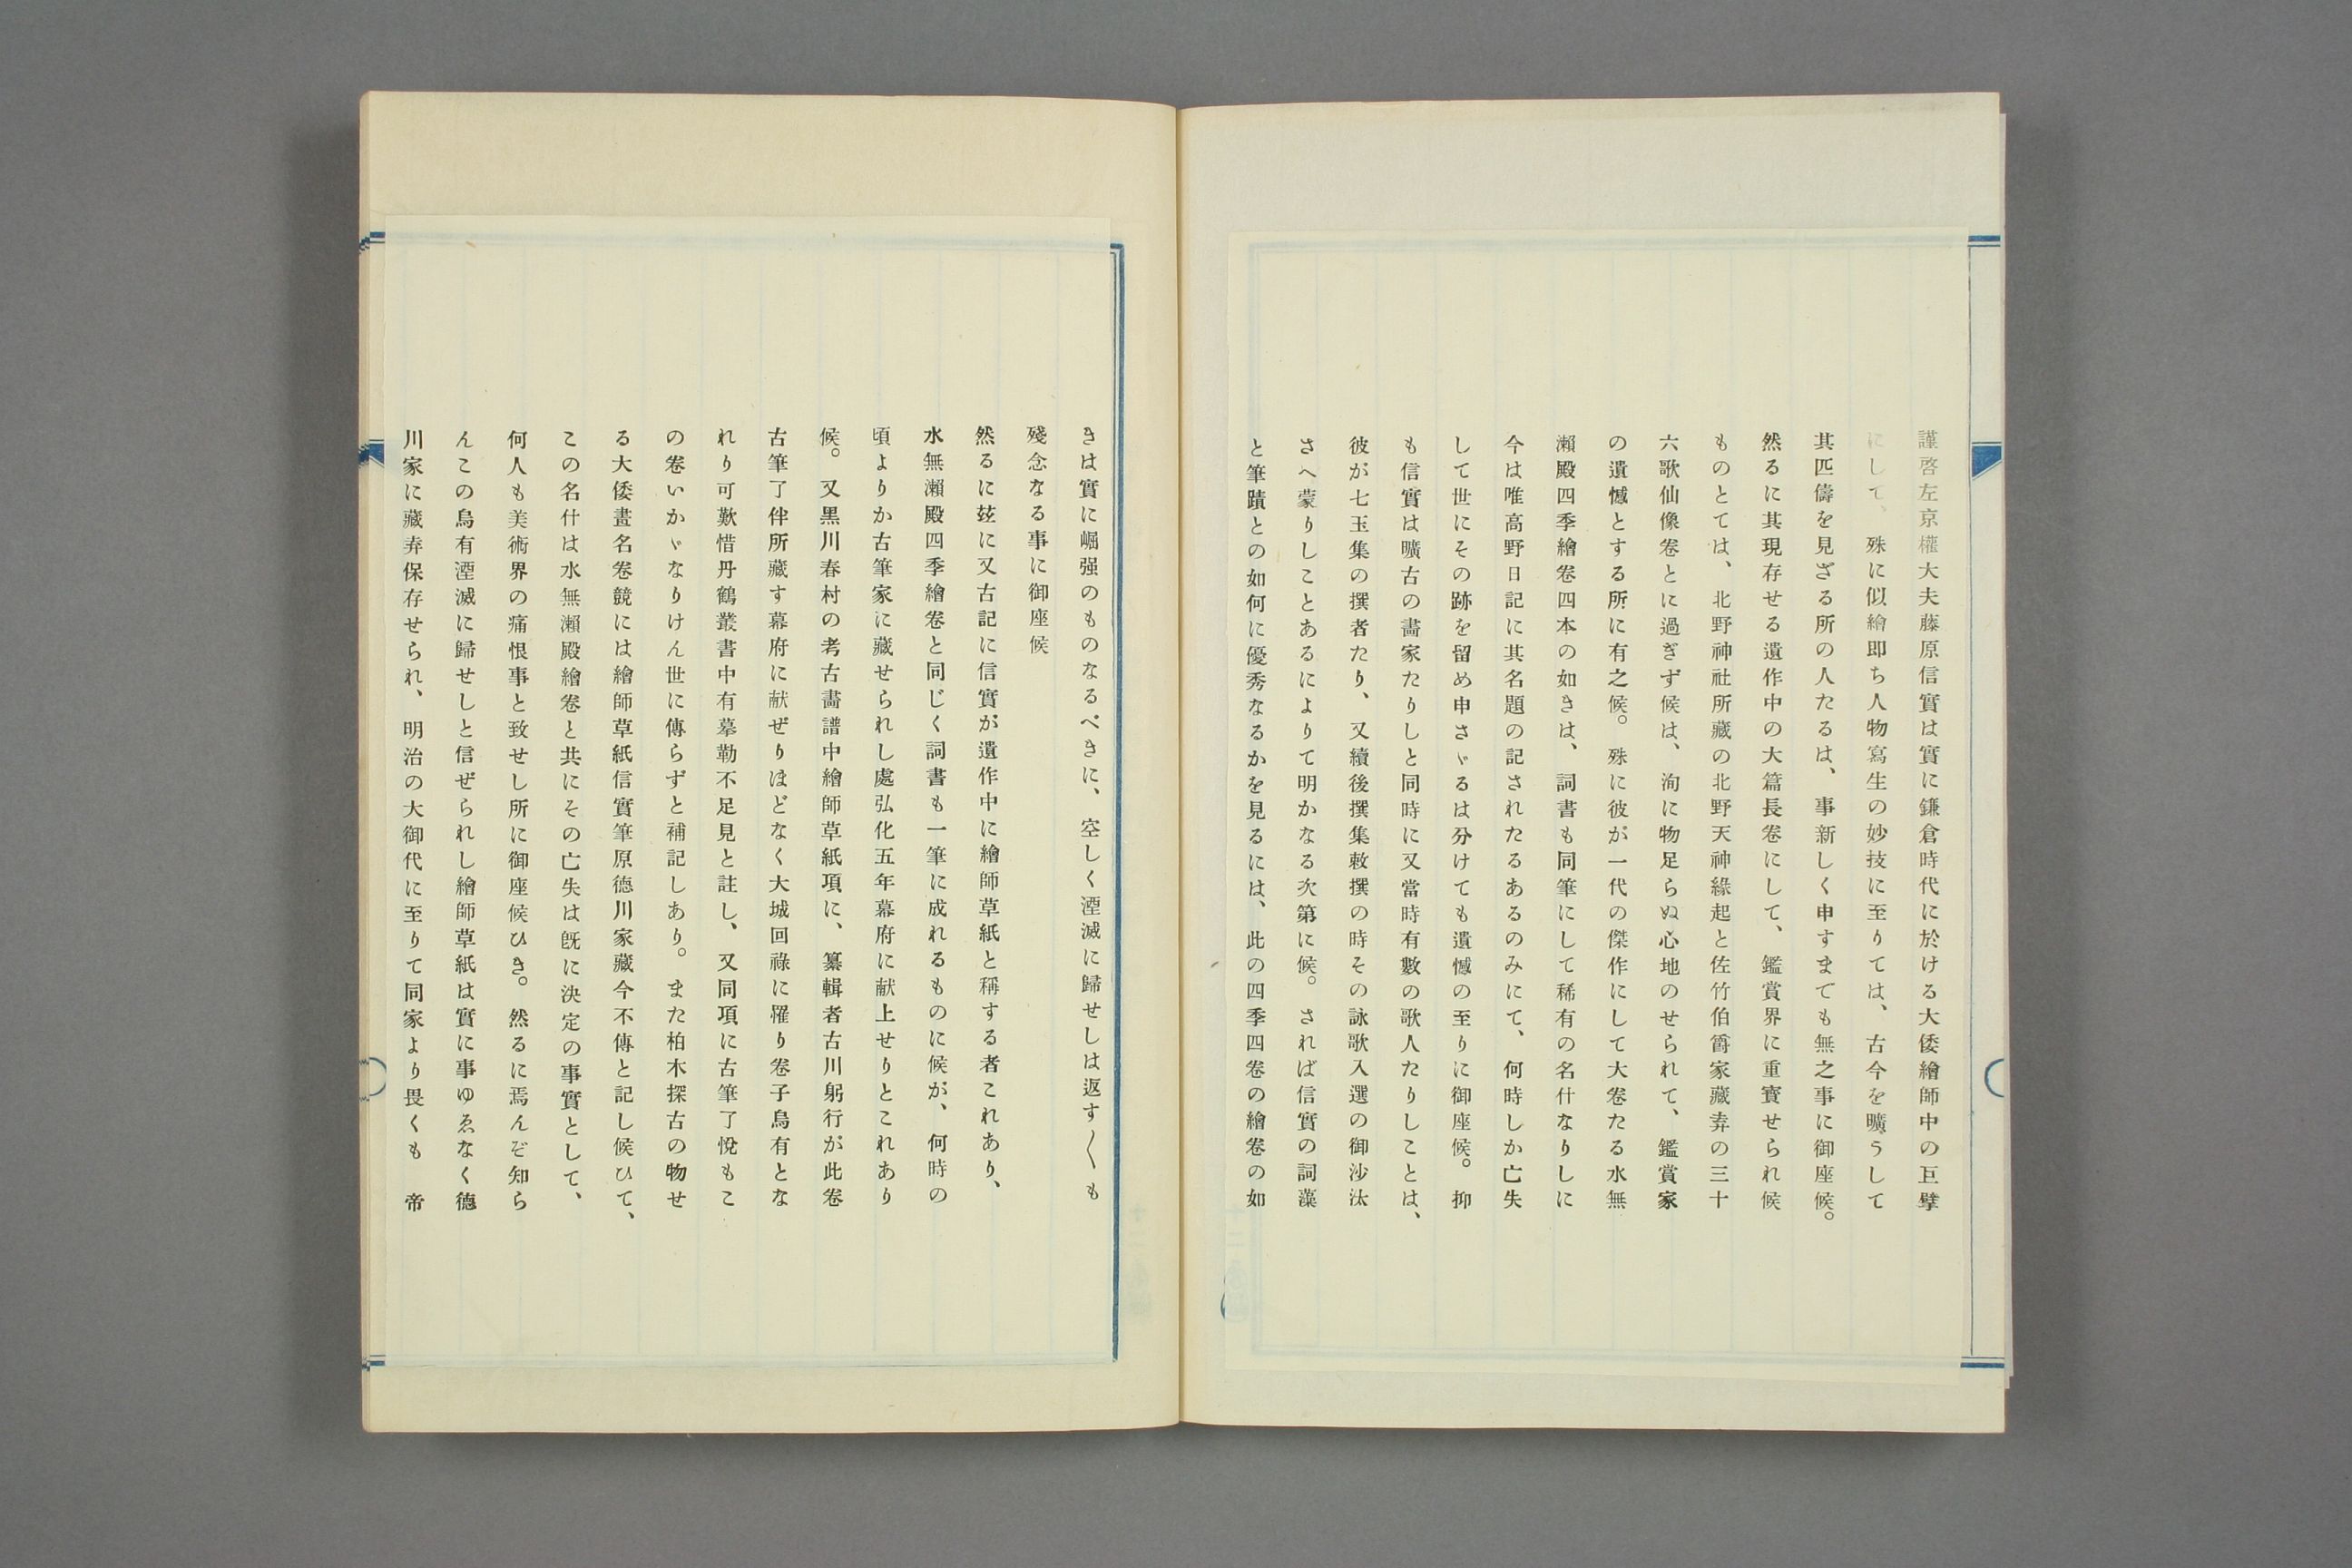 謹啓左京權大夫藤原信實は實に鎌倉時代に於ける大倭繪師中の巨擘
にして、殊に似繪即ち人物寫生の妙技に至りては、古今を曠うして
其匹儔を見ざる所の人たるは、事新しく申すまでも無之事に御座候。
然るに其現存せる遺作中の大篇長卷にして、鑑賞界に重寶せられ候
ものとては、北野神社所藏の北野天神緣起と佐竹伯爵家藏弆の三十
六歌仙像卷とに過ぎず候は、洵に物足らぬ心地のせられて、鑑賞家
の遺憾とする所に有之候。殊に彼が一代の傑作にして大卷たる水無
瀨殿四季繪卷四本の如きは、詞書も同筆にして稀有の名什なりしに
今は唯高野日記に其名題の記されたるあるのみにて、何時しか亡失
して世にその跡を留め申さゞるは分けても遺憾の至りに御座候。抑
も信實は曠古の畵家たりしと同時に又當時有數の歌人たりしことは、
彼が七玉集の撰者たり、又續後撰集敕撰の時その詠歌入選の御沙汰
さへ蒙りしことあるによりて明かなる次第に候。されば信實の詞藻
と筆蹟との如何に優秀なるかを見るには、此の四季四卷の繪卷の如
きは實に崛强のものなるべきに、空しく湮滅に歸せしは返す〱も
殘念なる事に御座候
然るに玆に又古記に信實が遺作中に繪師草紙と稱する者これあり、
水無瀨殿四季繪卷と同じく詞書も一筆に成れるものに候が、何時の
頃よりか古筆家に藏せられし處弘化五年幕府に献上せりとこれあり
候。又黑川春村の考古畵譜中繪師草紙項に、纂輯者古川躬行が此卷
古筆了伴所藏す幕府に献ぜりほどなく大城回祿に罹り卷子烏有とな
れり可歎惜丹鶴叢書中有摹勒不足見と註し、又同項に古筆了悅もこ
の卷いかゞなりけん世に傳らずと補記しあり。また柏木探古の物せ
る大倭畫名卷競には繪師草紙信實筆原德川家藏今不傳と記し候ひて、
この名什は水無瀨殿繪卷と共にその亡失は旣に決定の事實として、
何人も美術界の痛恨事と致せし所に御座候ひき。然るに焉んぞ知ら
んこの烏有湮滅に歸せしと信ぜられし繪師草紙は實に事ゆゑなく德
川家に藏弆保存せられ、明治の大御代に至りて同家より畏くも　帝